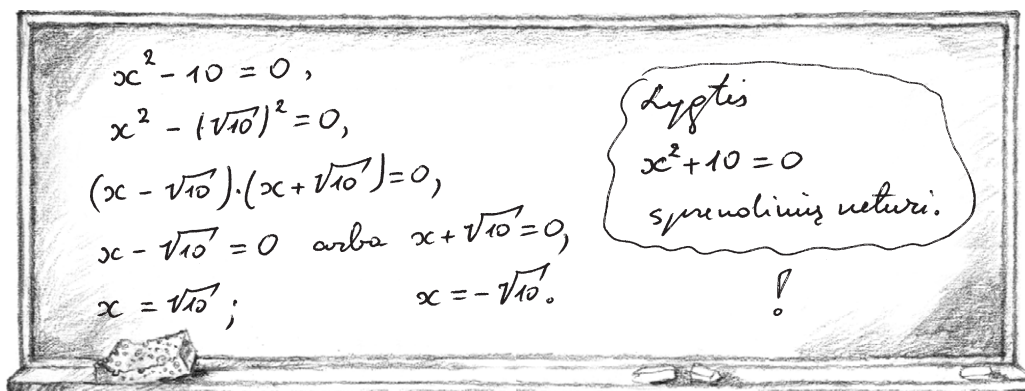 x² - 10 = 0,
x² - (√10)² = 0,
(x - √10)·(x + √10) = 0,
x - √10 = 0 arba x + √10 = 0,
x = √10; x = -√10.
Lygtis
x² + 10 = 0
sprendinių neturi.
!